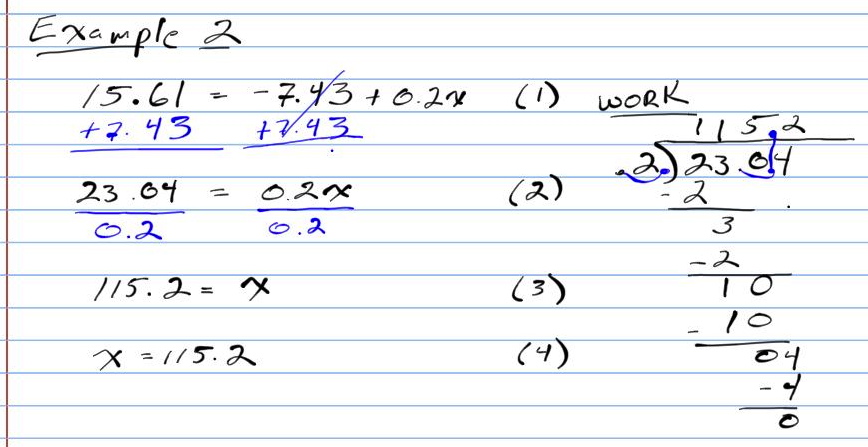 Example 2
15.61 = -7.43 + 0.2x (1) WORK
+7.43 +7.43 115.2
.2.)23.04
23.04 = 0.2x (2) -2
0.2 0.2 3
-2
115.2 = x (3) 10
-10
x = 115.2 (4) 04
-4
0